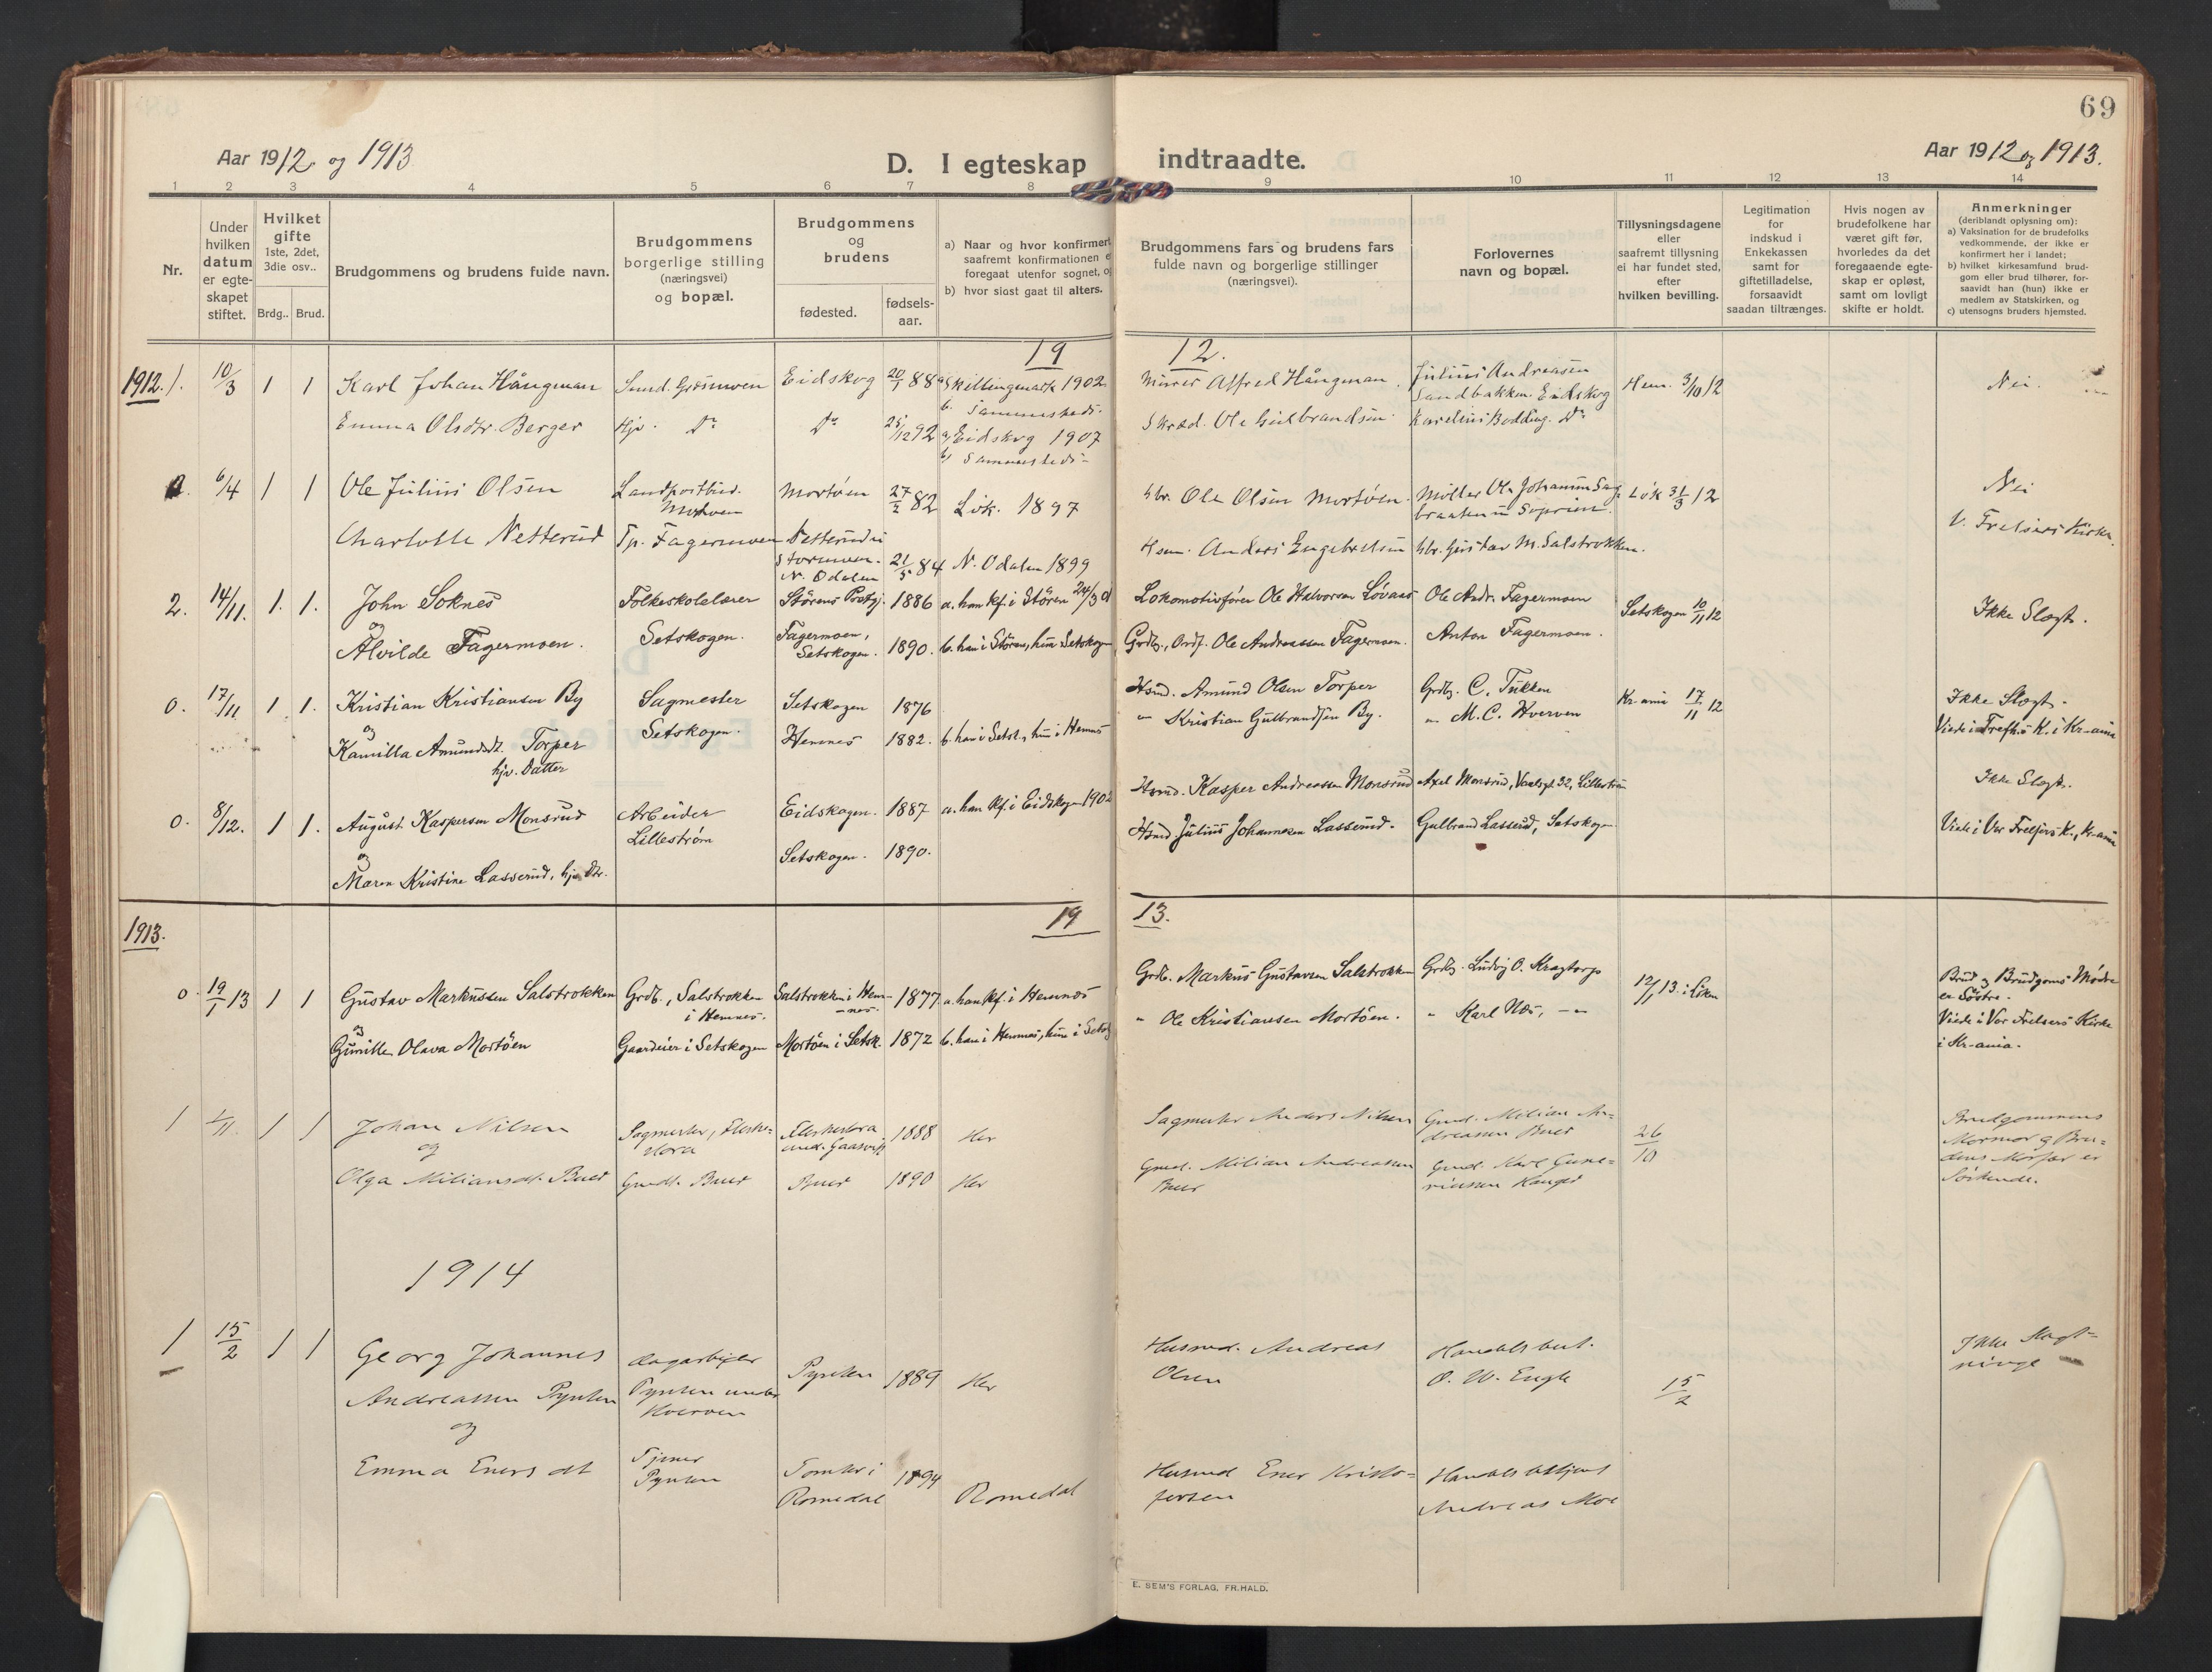 69
Aar 1912 og 1913
D. I egteskap indtraadte.
Aar 1912 og 1913.
1 2 3 4 5 6 7 8 9 10 11 12 13 14
Nr.
Under
hvilken
datum
er egte-
skapet
stiftet.
Hvilket
gifte
1ste, 2det,
3die osv..
Brdg.. Brud.
Brudgommens og brudens fulde navn.
Brudgommens
borgerlige stilling
(næringsvei)
og bopæl.
Brudgommens
og
brudens
fødested.
fødsels-
aar.
a) Naar og hvor konfirmert
saafremt konfirmationen e
foregaat utenfor sognet, o
b) hvor sidst gaat til alters.
Brudgommens fars og brudens fars
fulde navn og borgerlige stillinger
(næringsvei).
Forlovernes
navn og bopæl.
Tillysningsdagene
eller
saafremt tillysning
ei har fundet sted,
efter
hvilken bevilling.
Legitimation
for
indskud i
Enkekassen
samt for
giftetilladelse,
forsaavidt
saadan tiltrænges.
Hvis nogen av
brudefolkene har
været gift før,
hvorledes da det
foregaaende egte-
skap er opløst,
samt om lovligt
skifte er holdt.
Anmerkninger
(deriblandt oplysning om):
a) Vaksination for de brudefolks
vedkommende, der ikke er
konfirmert her i landet;
b) hvilket kirkesamfund brud-
gom eller brud tilhører, for-
saavidt han (hun) ikke er
medlem av Statskirken, og
c) utensogns bruders hjemsted.
19 12.
1912. 1. 10/3 1 1 Karl Johan Hångman
Eidskog 20/1 88 a) Skillingmark 1902
b. Sammesteds.
Murer Alfred Hångman
Julius Andreasen
Sandbakken Eidskog
Hem. 3/10 12
Nei.
Emma Olsdtr. Berger
Hjv. Do Do 25/12 92 a) Eidskog 1907
b) Sammesteds
Skræd. Ole Gulbrandsen
6/4 1 1 Ole Julius Olsen
Landpostbud.
Mortøen 27/2 82 Løk. 1897
Gbr. Ole Olsen Mortøen.
Løk 31/3 12
Nei
V. Frelsers Kirke
Charlotte Netterud
Tp. Fagermoen
Netterud i
Stormoen.
N. Odalen 21/5 84 N. Odalen 1899
Hsm. Anders Engebretsen
Gbr. Gustav M. Salstrokken.
2. 14/11. 1. 1. John Soknes
og
Alvilde Fagermoen.
Folkeskolelærer
Setskogen.
Størens Prstgj. 1886 a. han kf. i Støren 24/3 01
Fagermoen,
Setskogen. 1890. b. han i Støren, hun Setskogen
Lokomotivfører Ole Halvorsen Løvaas
Grdbr., Ordf. Ole Andreassen Fagermoen.
Ole Andr. Fagermoen
Anton Fagermoen.
Setskogen 10/11 12
Ikke Slegt.
0. 17/11 1 1. Kristian Kristiansen By
og
Kamilla Amundsdt. Torper
hjv. Datter
Sagmester
Setskogen.
Setskogen 1876
Hemnes 1882. b. han i Setsk., hun i Hemnes
Hsmd. Amund Olsen Torper
Kristian Gulbrandsen By.
Grdbr. C. Tukken
M. C. Hverven
Kr-ania 17/11 12
Ikke Slegt.
Viede i Trefh.s K. i Kr-ania
0. 8/12. 1 1. August Kaspersen Monsrud
og
Maren Kristine Lasserud, hjv. Dtr.
Arbeider
Lillestrøm
Eidskogen. 1887 a. han kf. i Eidskogen 1902
Setskogen. 1890.
Hsmd. Kasper Andreassen Monsrud
Hsmd Julius Johannesen Lasserud.
Axel Monsrud, Vaalsgt 32, Lillestrøm
Gulbrand Lasserud, Setskogen
Ikke Slegt.
Viede i Vor Frelsers K., Kr-ania
1913. 19 13.
0. 19/1 13 1 1 Gustav Markussen Salstrokken
og
Gunille Olava Mortøen
Grdb., Salstrokken
i Hemnes.
Gaardeier i Setskogen
Salstrokken i Hem-
nes. 1877. a. han kf. i Hemnes
Mortøen i Setsk. 1872 b. han i Hemnes, hun i Setsk
Grdb. Markus Gustavsen Salstrokken
" Ole Kristiansen Mortøen.
Grdbr. Ludvig O. Kragtorp
" Karl Næs, -"-
12/1 13. i Løken
Brud og Brudgoms Mødre
er Søstre.
Viede i Vor Frelsers Kirke
i Kr-ania.
1 1/11. 1 1 Johan Nilsen
og
Olga Miliansdt. Buer
Gmdt. Buer
1888 Her
Buer 1890 Her
Sagmester Anders Nilsen
Gmd. Milian Andreassen
Buer
Gmd. Milian An-
dreassen Buer
26/10
Brudgommens
Mormor og Bru-
dens Morfar er
Søskende.
1914
1 15/2 1 1 Georg Johannes
Andreassen Pynten
og
Emma Enersdt
dagarbeider
Pynten under
Hverven
Tjener
Pynten
Pynten 1889 Her
Tomter i
Romedal 1894 Romedal
Husmd. Andreas
Olsen
Husmd Ener Kristo-
fersen
Handelsbest.
O. W. Engh
Handelsbetjent
Andreas Moe
15/2
Ikke Slegt-
ninge
E. SEM'S FORLAG, FR.HALD.